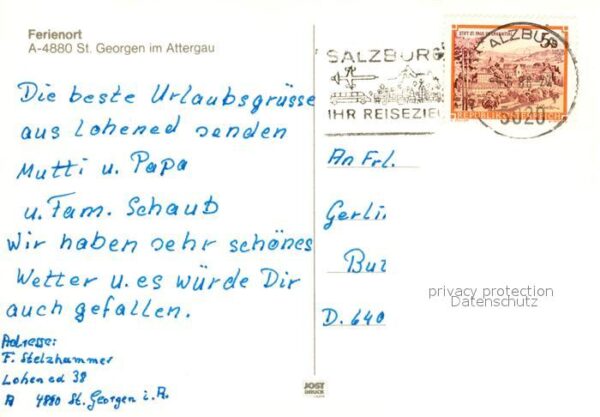 Ferienort
A-4880 St. Georgen im Attergau
Die beste Urlaubsgrüsse
aus Lohened senden
Mutti u. Papa
u. Fam. Schaub
Wir haben sehr schönes
Wetter u. es würde Dir
auch gefallen.
Adresse:
F. Stelzhammer
Lohened 38
A 4880 St. Georgen i. A.
SALZBURG
IHR REISEZIEL
SALZBURG
5020
5
REPUBLIK ÖSTERREICH
An Frl.
Gerli
Buz
D. 640
privacy protection
Datenschutz
JOST
DRUCK